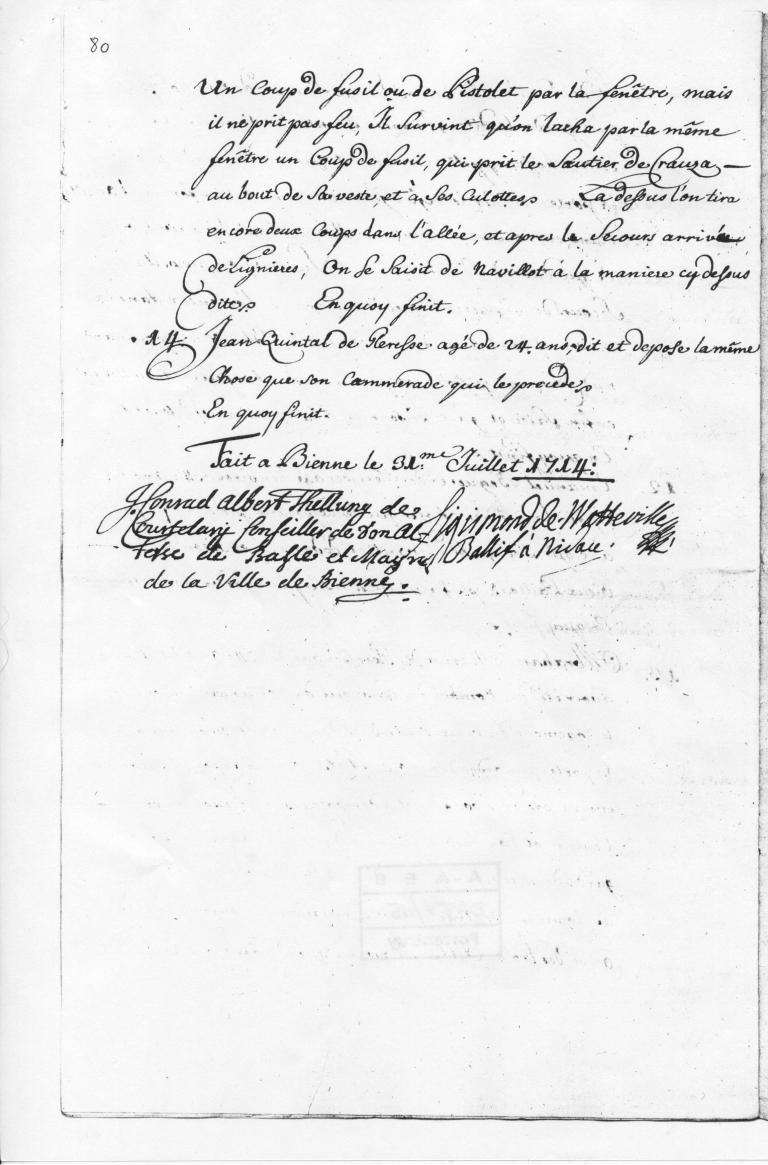 80
Un Coup de fusil ou de Pistolet par la fenêtre, mais
il ne prit pas feu, Il Survint qu'on lacha par la même
fenêtre un Coup de fusil, qui prit le Sautier de Crauza
au bout de Sa veste, et à Ses Culottes, La dessus l'on tira
encore deux Coups dans l'allée, et apres le Secours arrivée
de Lignieres, On se Saisit de Navillot à la maniere cy dessus
dite, En quoy finit.
14. Jean Quintal de Gleresse agé de 24. ans, dit et depose la même
Chose que son Cammerade qui le precede,
En quoy finit.
Fait a Bienne le 31.me Juillet 1714:
Conrad Albert Thellung de Sigismond de Watteville
Courtelary Conseiller de Son Al Ballif à Nidau.
tesse de Basle et Maire
de la Ville de Bienne.